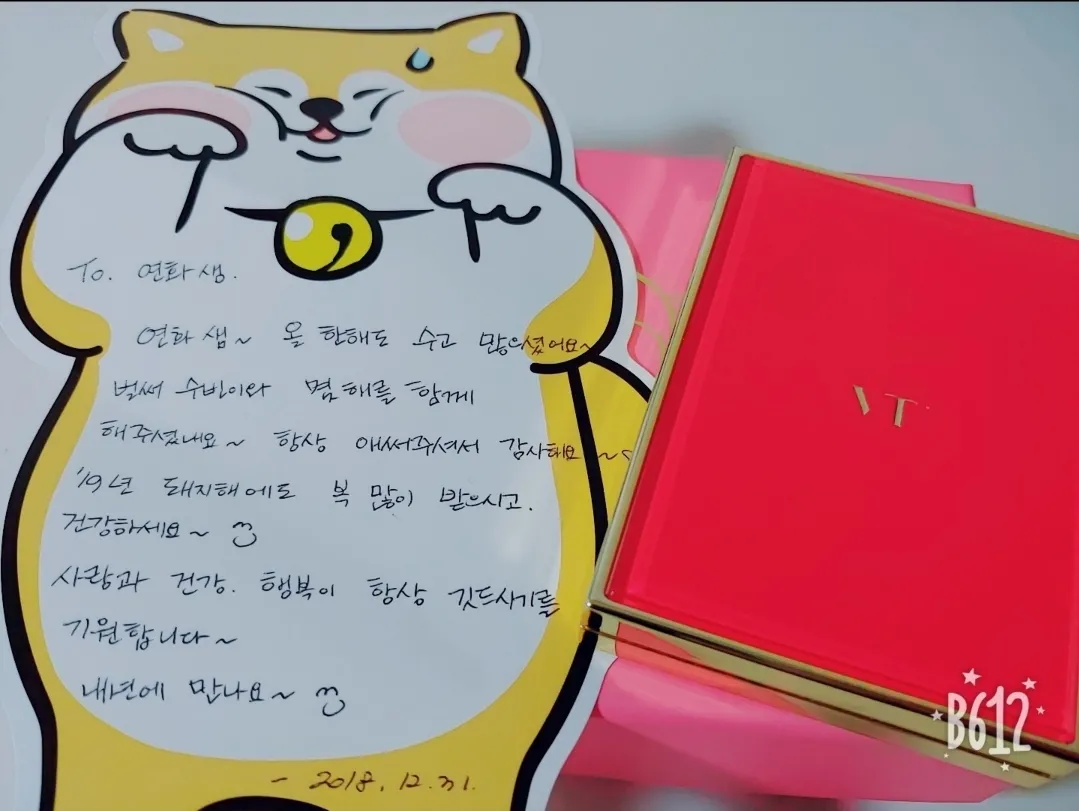 To. 연화샘.
연화샘~ 올 한해도 수고 많으셨어요~
벌써 수빈이와 몇해를 함께
해주셨네요~ 항상 애써주셔서 감사해요~♡
'19년 돼지해에도 복 많이 받으시고.
건강하세요~
사랑과 건강. 행복이 항상 깃드시기를
기원합니다~
내년에 만나요~
- 2018. 12. 31.
VT
B612